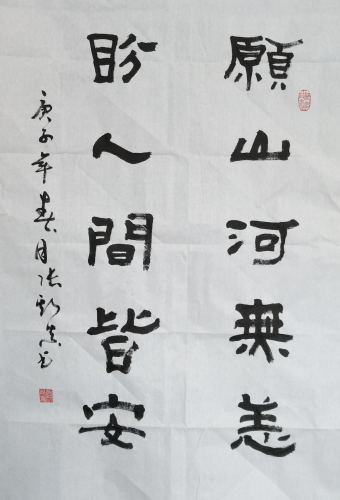 願山河無恙
盼人間皆安
庚子年春月张